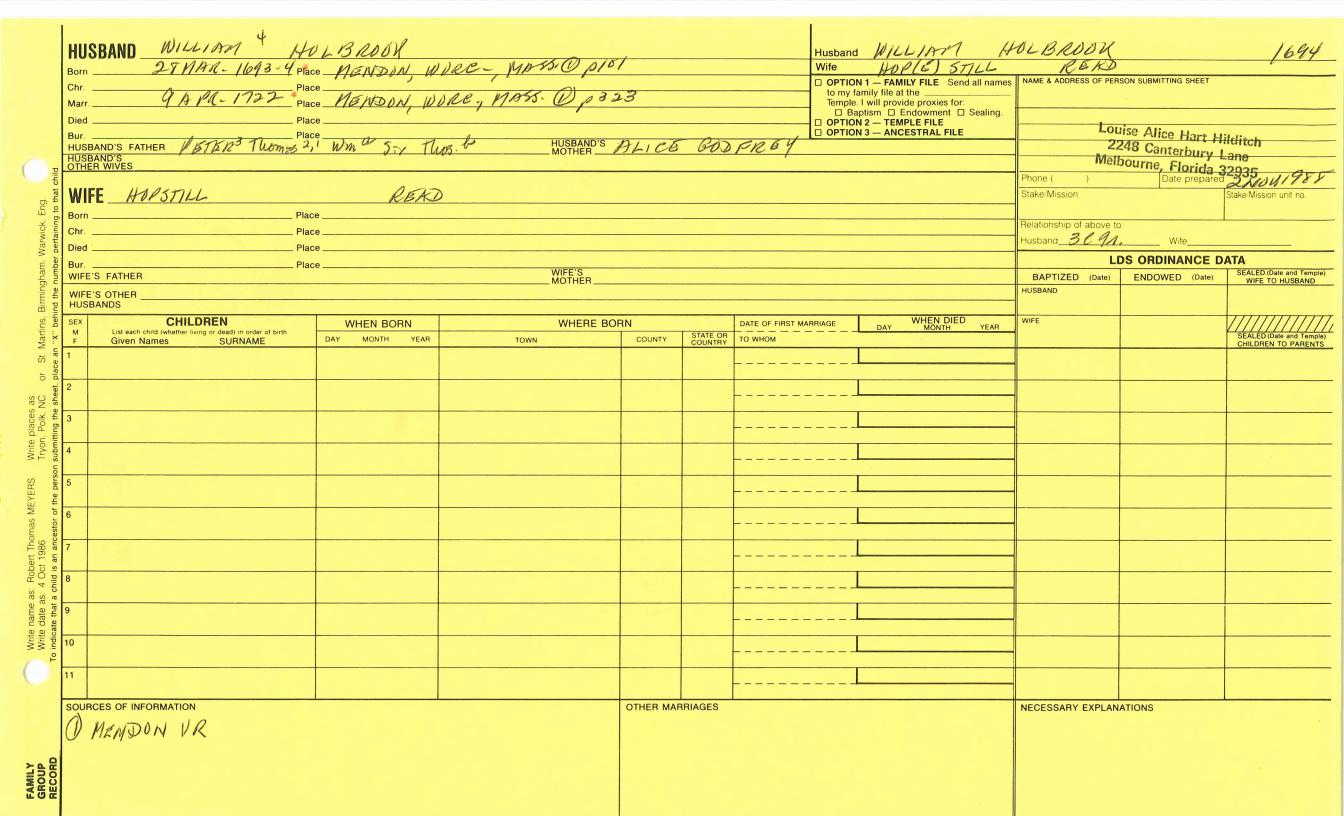 HUSBAND WILLIAM 4 HOLBROOK
Born 28 MAR - 1693-4 Place MENDON, WORC-, MASS ① p101
Chr. Place
Marr. 9 APR - 1722 Place MENDON, WORC-, MASS. ① p323
Died Place
Bur. Place
HUSBAND'S FATHER PETER 3 Thomas 2,1 Wm Thos. HUSBAND'S MOTHER ALICE GODFREY
HUSBAND'S OTHER WIVES
Husband WILLIAM HOLBROOK 1694
Wife HOP(E) STILL READ
☐ OPTION 1 — FAMILY FILE Send all names
to my family file at the
Temple. I will provide proxies for:
☐ Baptism ☐ Endowment ☐ Sealing.
☐ OPTION 2 — TEMPLE FILE
☐ OPTION 3 — ANCESTRAL FILE
NAME & ADDRESS OF PERSON SUBMITTING SHEET
Louise Alice Hart Hilditch
2248 Canterbury Lane
Melbourne, Florida 32935
Phone ( ) Date prepared 2 NOV 1988
Stake/Mission Stake/Mission unit no.
Relationship of above to:
Husband 3C 9r. Wife
WIFE HOPSTILL READ
Born Place
Chr. Place
Died Place
Bur. Place
WIFE'S FATHER WIFE'S MOTHER
WIFE'S OTHER HUSBANDS
LDS ORDINANCE DATA
BAPTIZED (Date) ENDOWED (Date) SEALED (Date and Temple) WIFE TO HUSBAND
HUSBAND
WIFE
SEALED (Date and Temple) CHILDREN TO PARENTS
SEX M F
CHILDREN
List each child (whether living or dead) in order of birth
Given Names SURNAME
WHEN BORN
DAY MONTH YEAR
WHERE BORN
TOWN COUNTY STATE OR COUNTRY
DATE OF FIRST MARRIAGE
TO WHOM
WHEN DIED
DAY MONTH YEAR
1
2
3
4
5
6
7
8
9
10
11
SOURCES OF INFORMATION
① MENDON VR
OTHER MARRIAGES
NECESSARY EXPLANATIONS
Write name as: Robert Thomas MEYERS Write places as: Tryon, Polk, NC or St. Martins, Birmingham, Warwick, Eng.
Write date as: 4 Oct 1986
To indicate that a child is an ancestor of the person submitting the sheet, place an "X" behind the number pertaining to that child
FAMILY
GROUP
RECORD